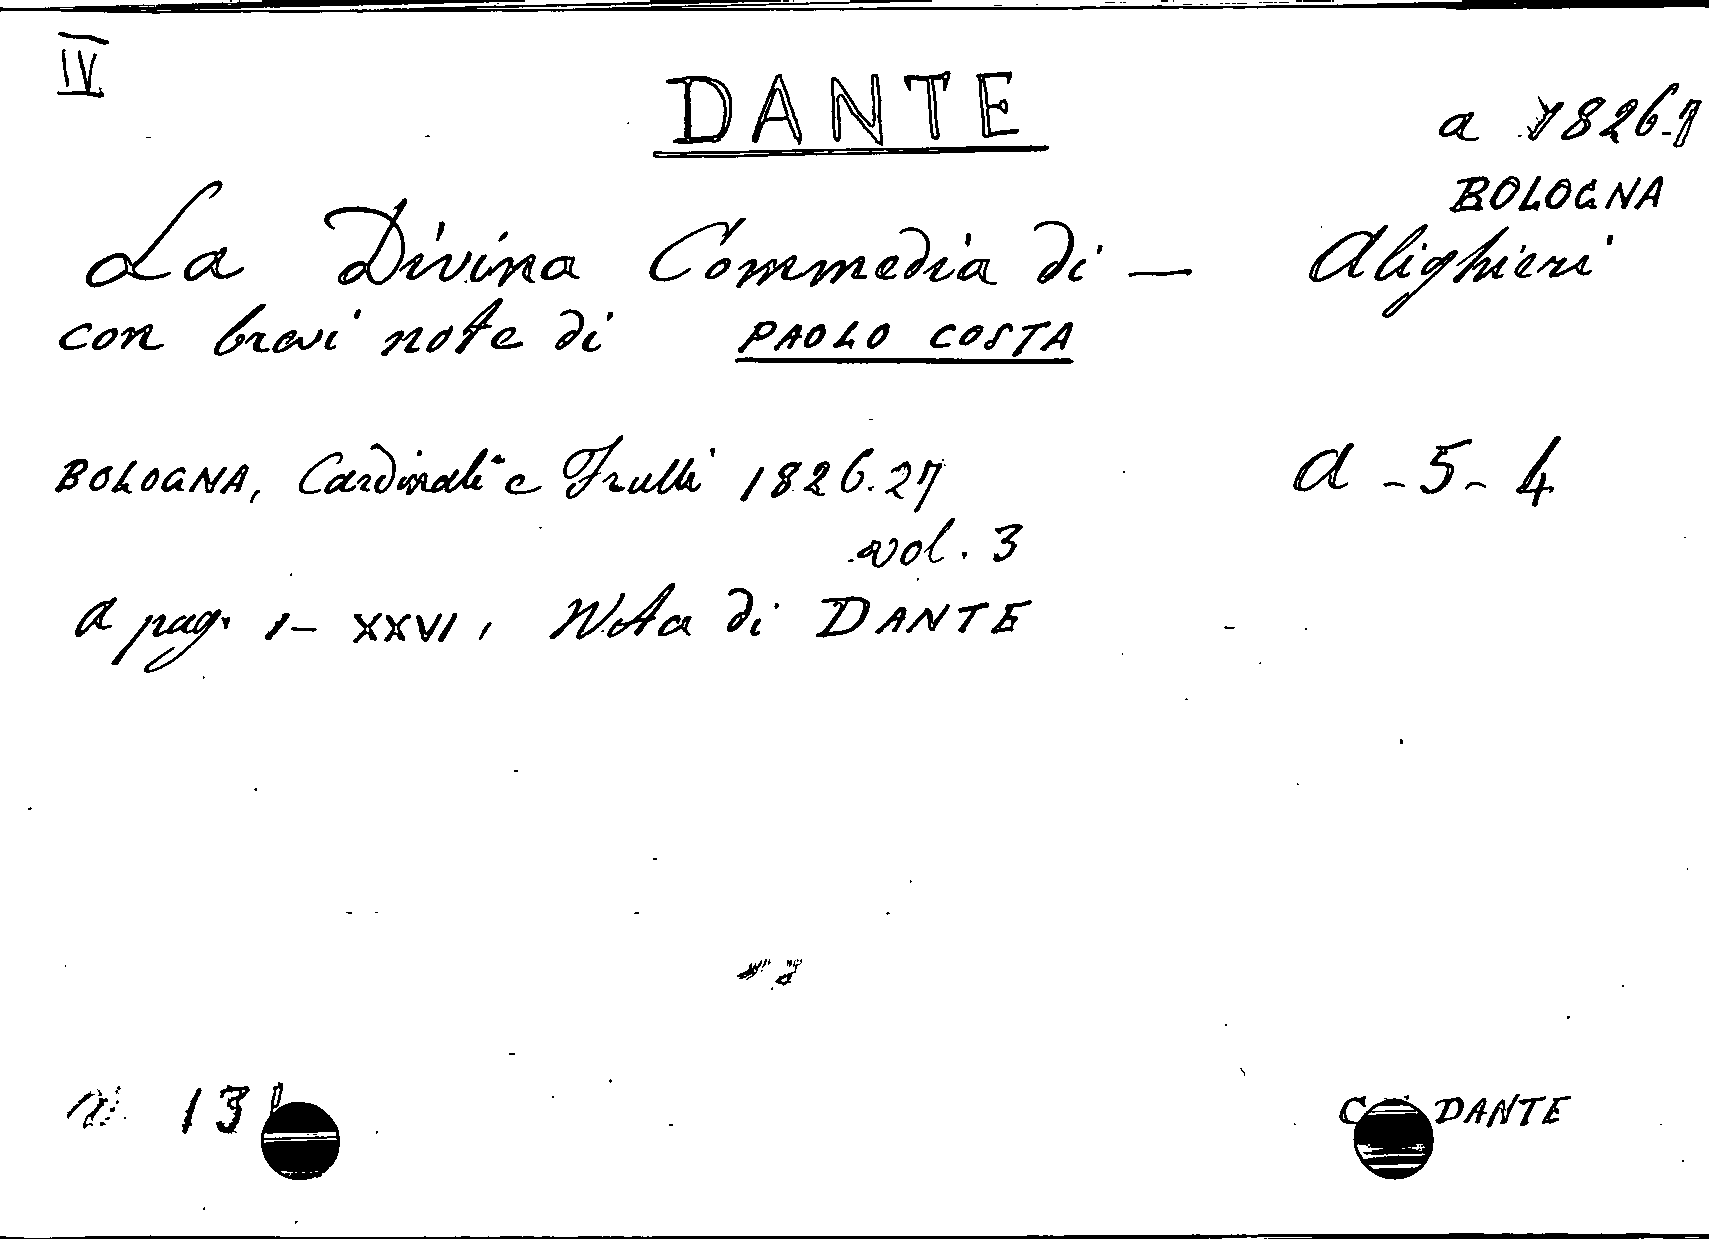 IV
DANTE
a 1826-7
BOLOGNA
La Divina Commedia di — Alighieri
con brevi note di PAOLO COSTA
BOLOGNA, Cardinali e Frulli 1826.27
a - 5 - 4
vol. 3
a pag. I - XXVI, Nota di DANTE
n. 13
DANTE